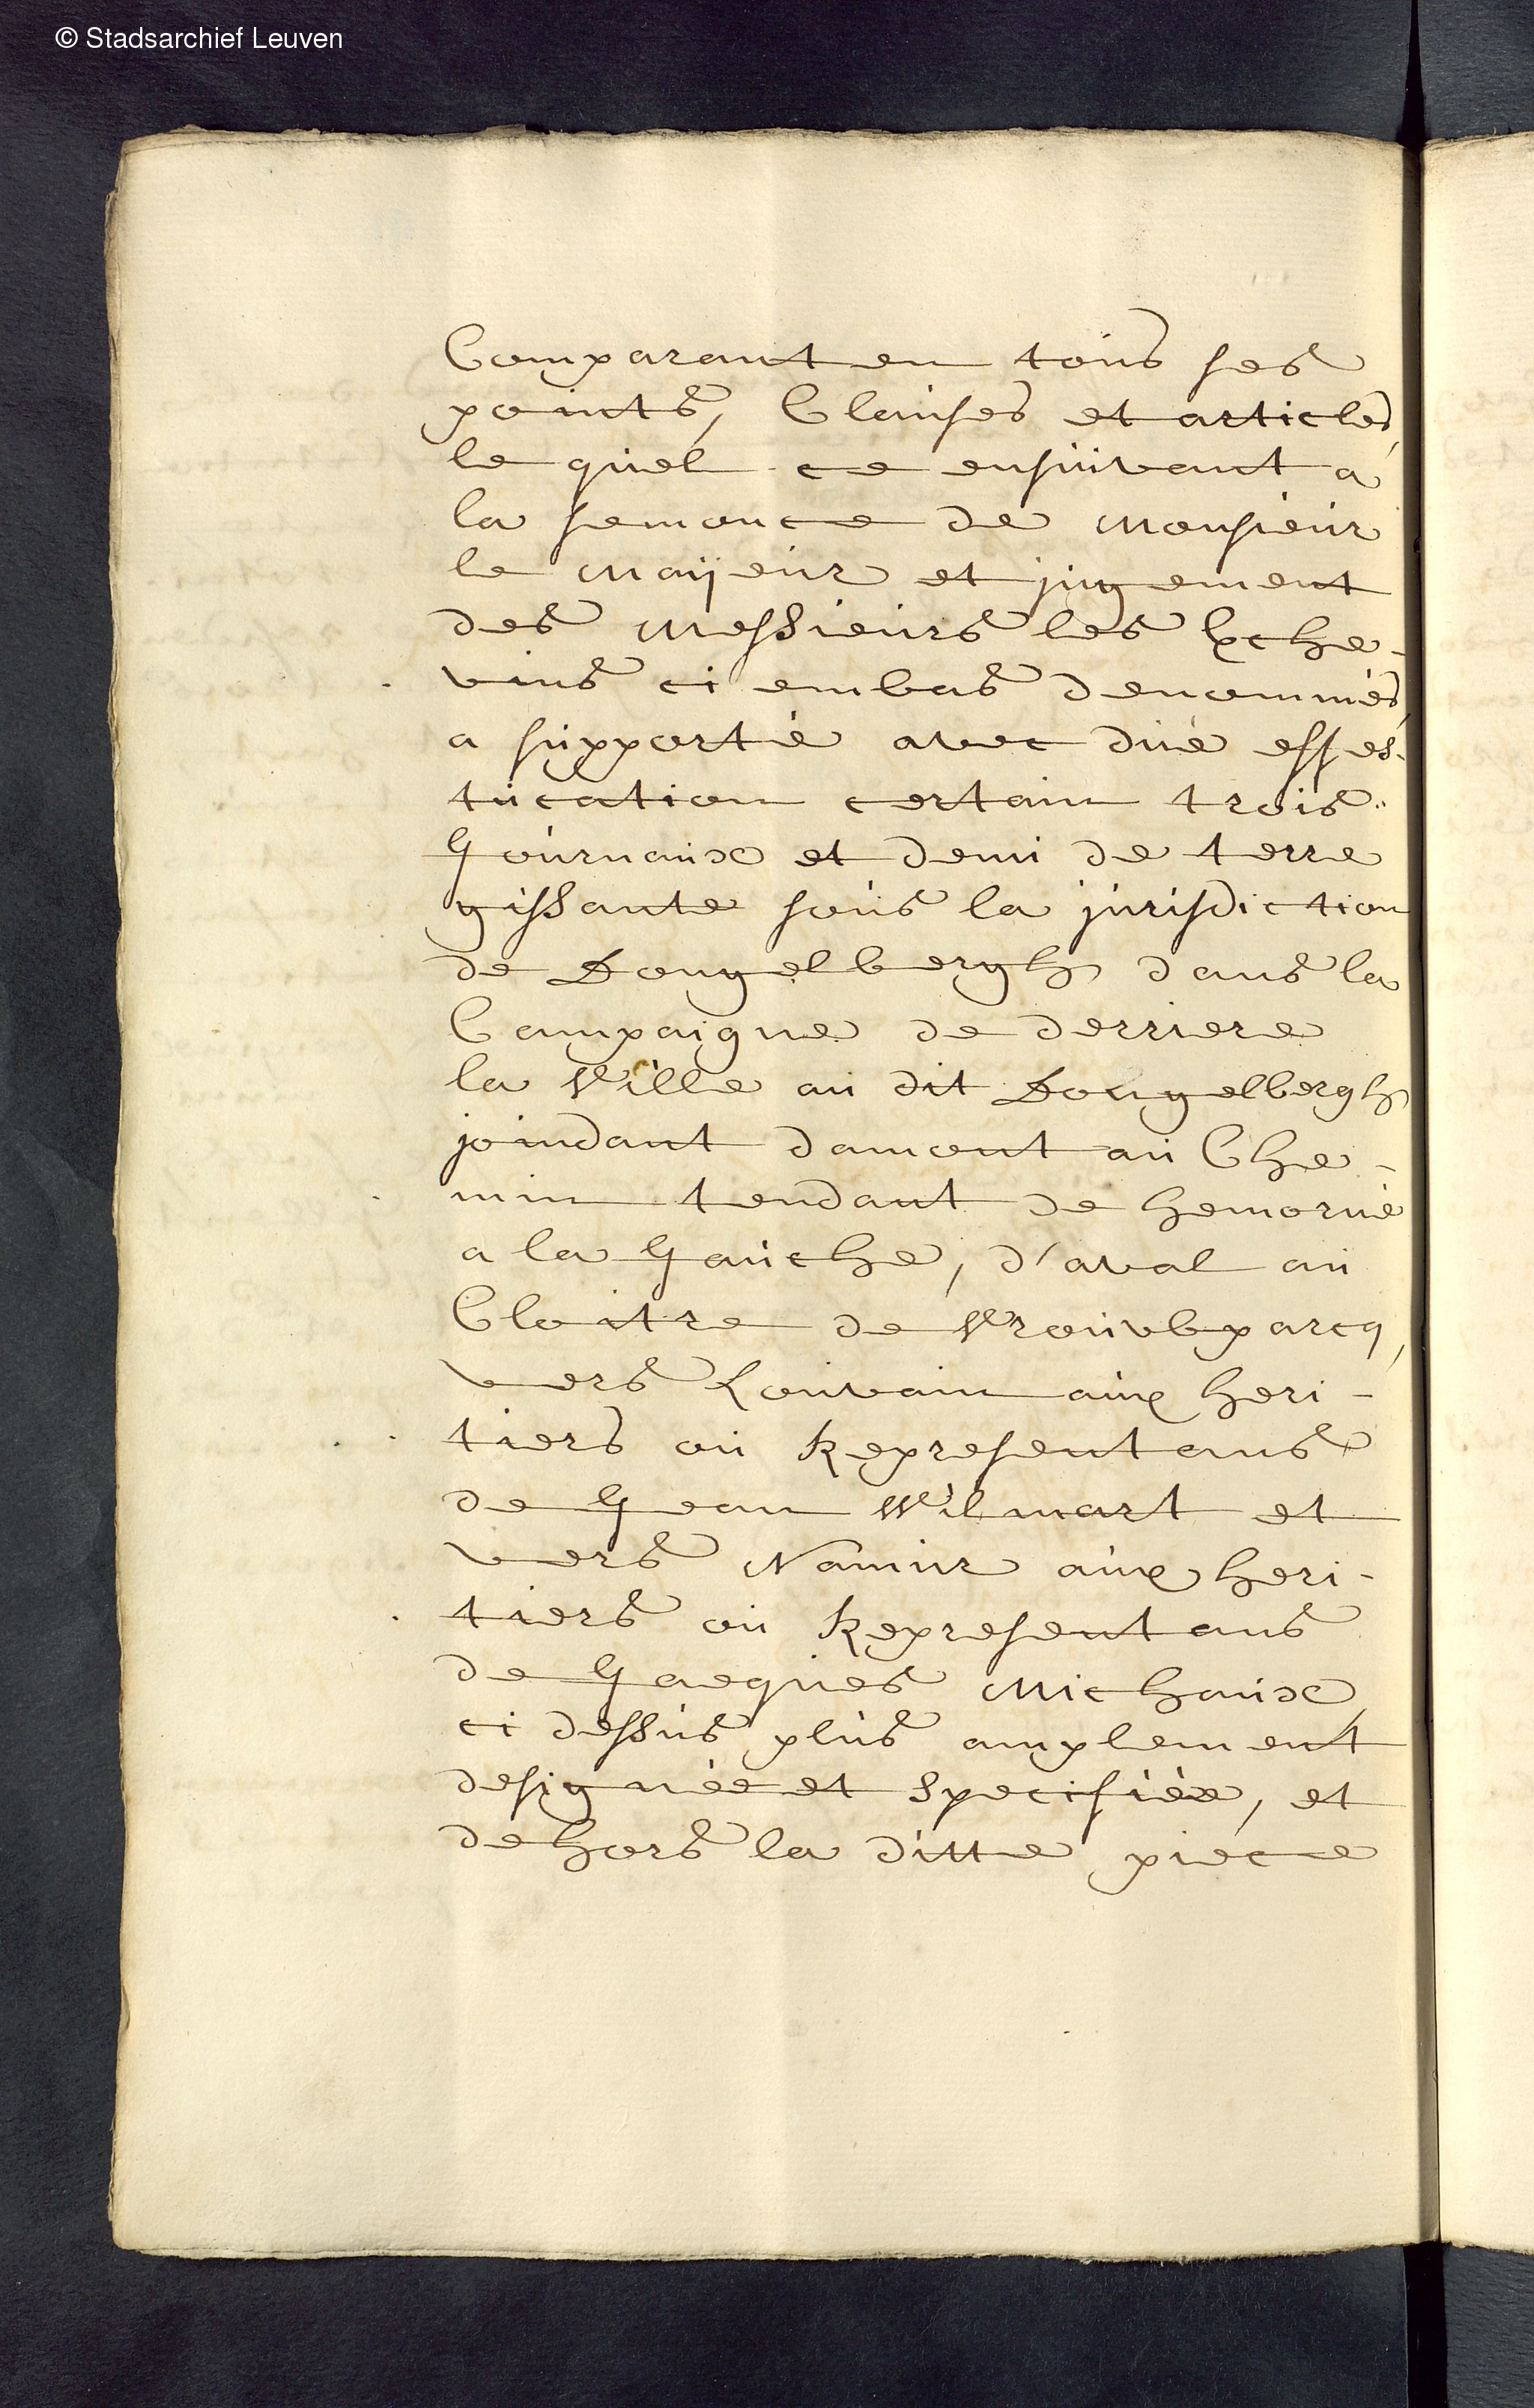 © Stadsarchief Leuven
Comparant en tous ses
points, Clauses et articles,
le quel ce ensuivant a
la semonce de Monsieur
le Maÿeur et jugement
des Messieurs les Eche-
vins ci embas denommés,
a supporté avec düe effes-
tucation certain trois
Journaux et demi de terre
gissante sous la jurisdiction
de Dongelbergh dans la
Campaigne de derriere
la Ville au dit Dongelbergh
joindant damont au Che-
min tendant de hemorue
a la Hauche, d'aval au
Cloitre de Vrouvbparcq,
vers Louvain aux heri-
tiers ou Representans
de Jean Wilmart et
vers Namur aux heri-
tiers ou Representans
de Jacques Michaux,
ci dessus plus amplement
designée et specifiée, et
dehors la ditte piece